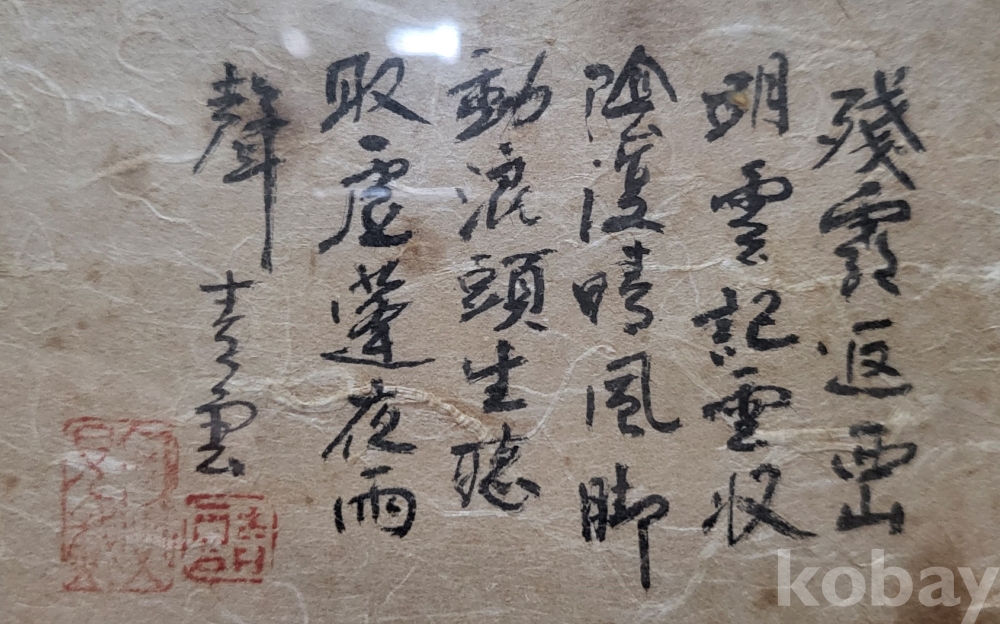 殘霞返西山
明雲記雲収
陰復晴風脚
動浪頭生聽
取虛蓬夜雨
聲
靑雲
kobay